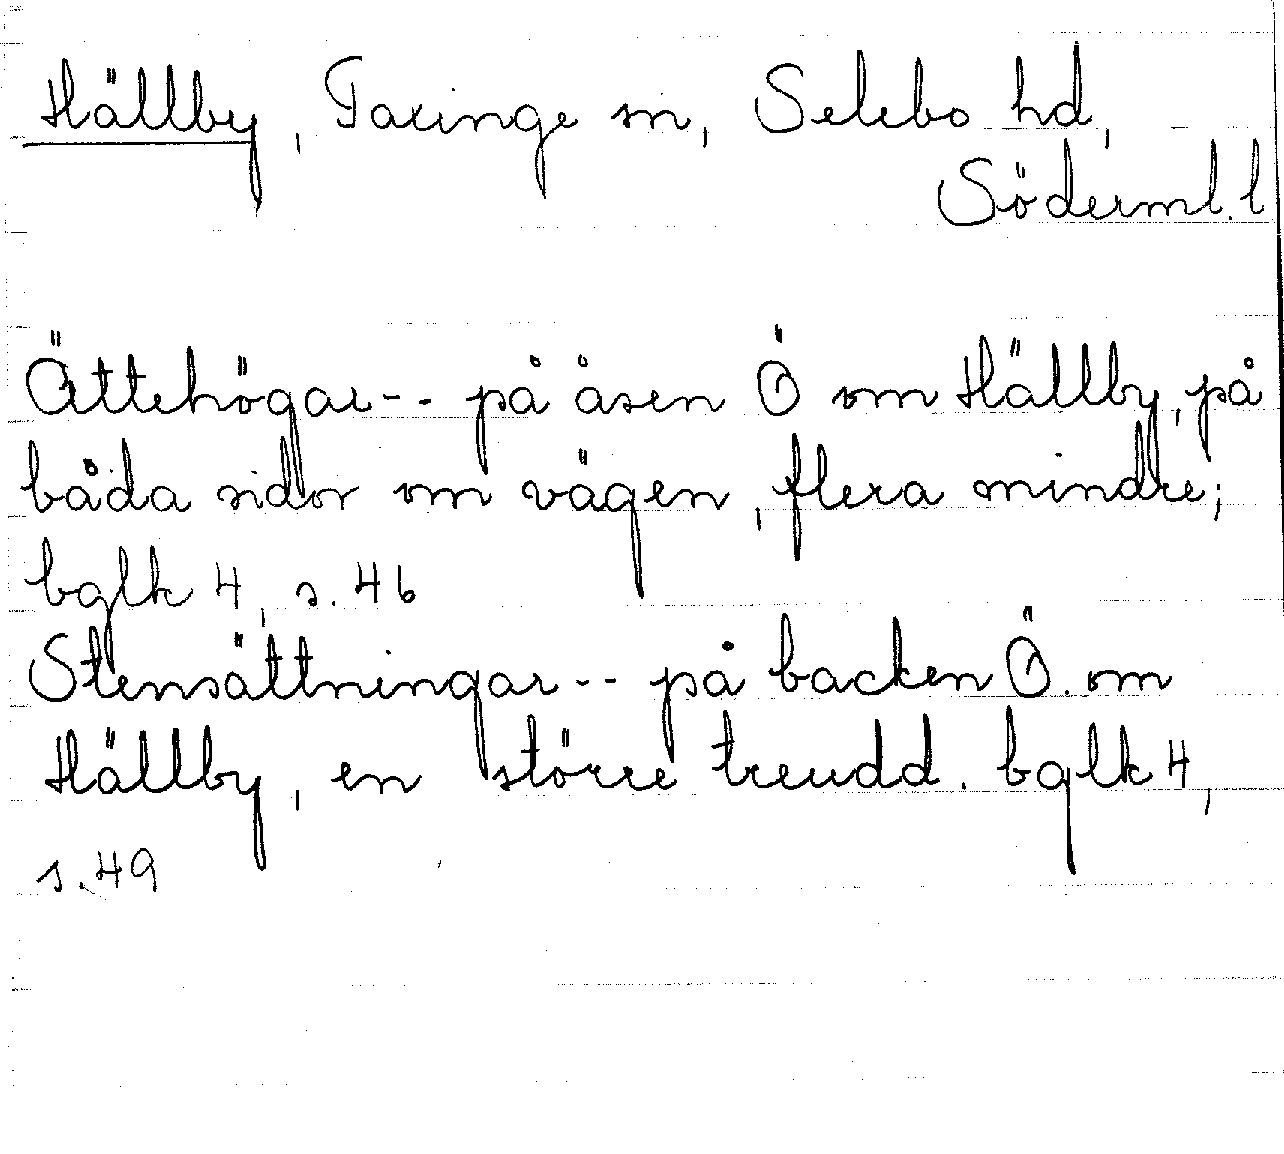 Hällby, Taxinge sn, Selebo hd,
Söderml. l
Ättehögar-- på åsen Ö om Hällby, på
båda sidor om vägen, flera mindre;
bglk 4, s. 46
Stensättningar-- på backen Ö. om
Hällby, en större treudd. bglk 4,
s. 49